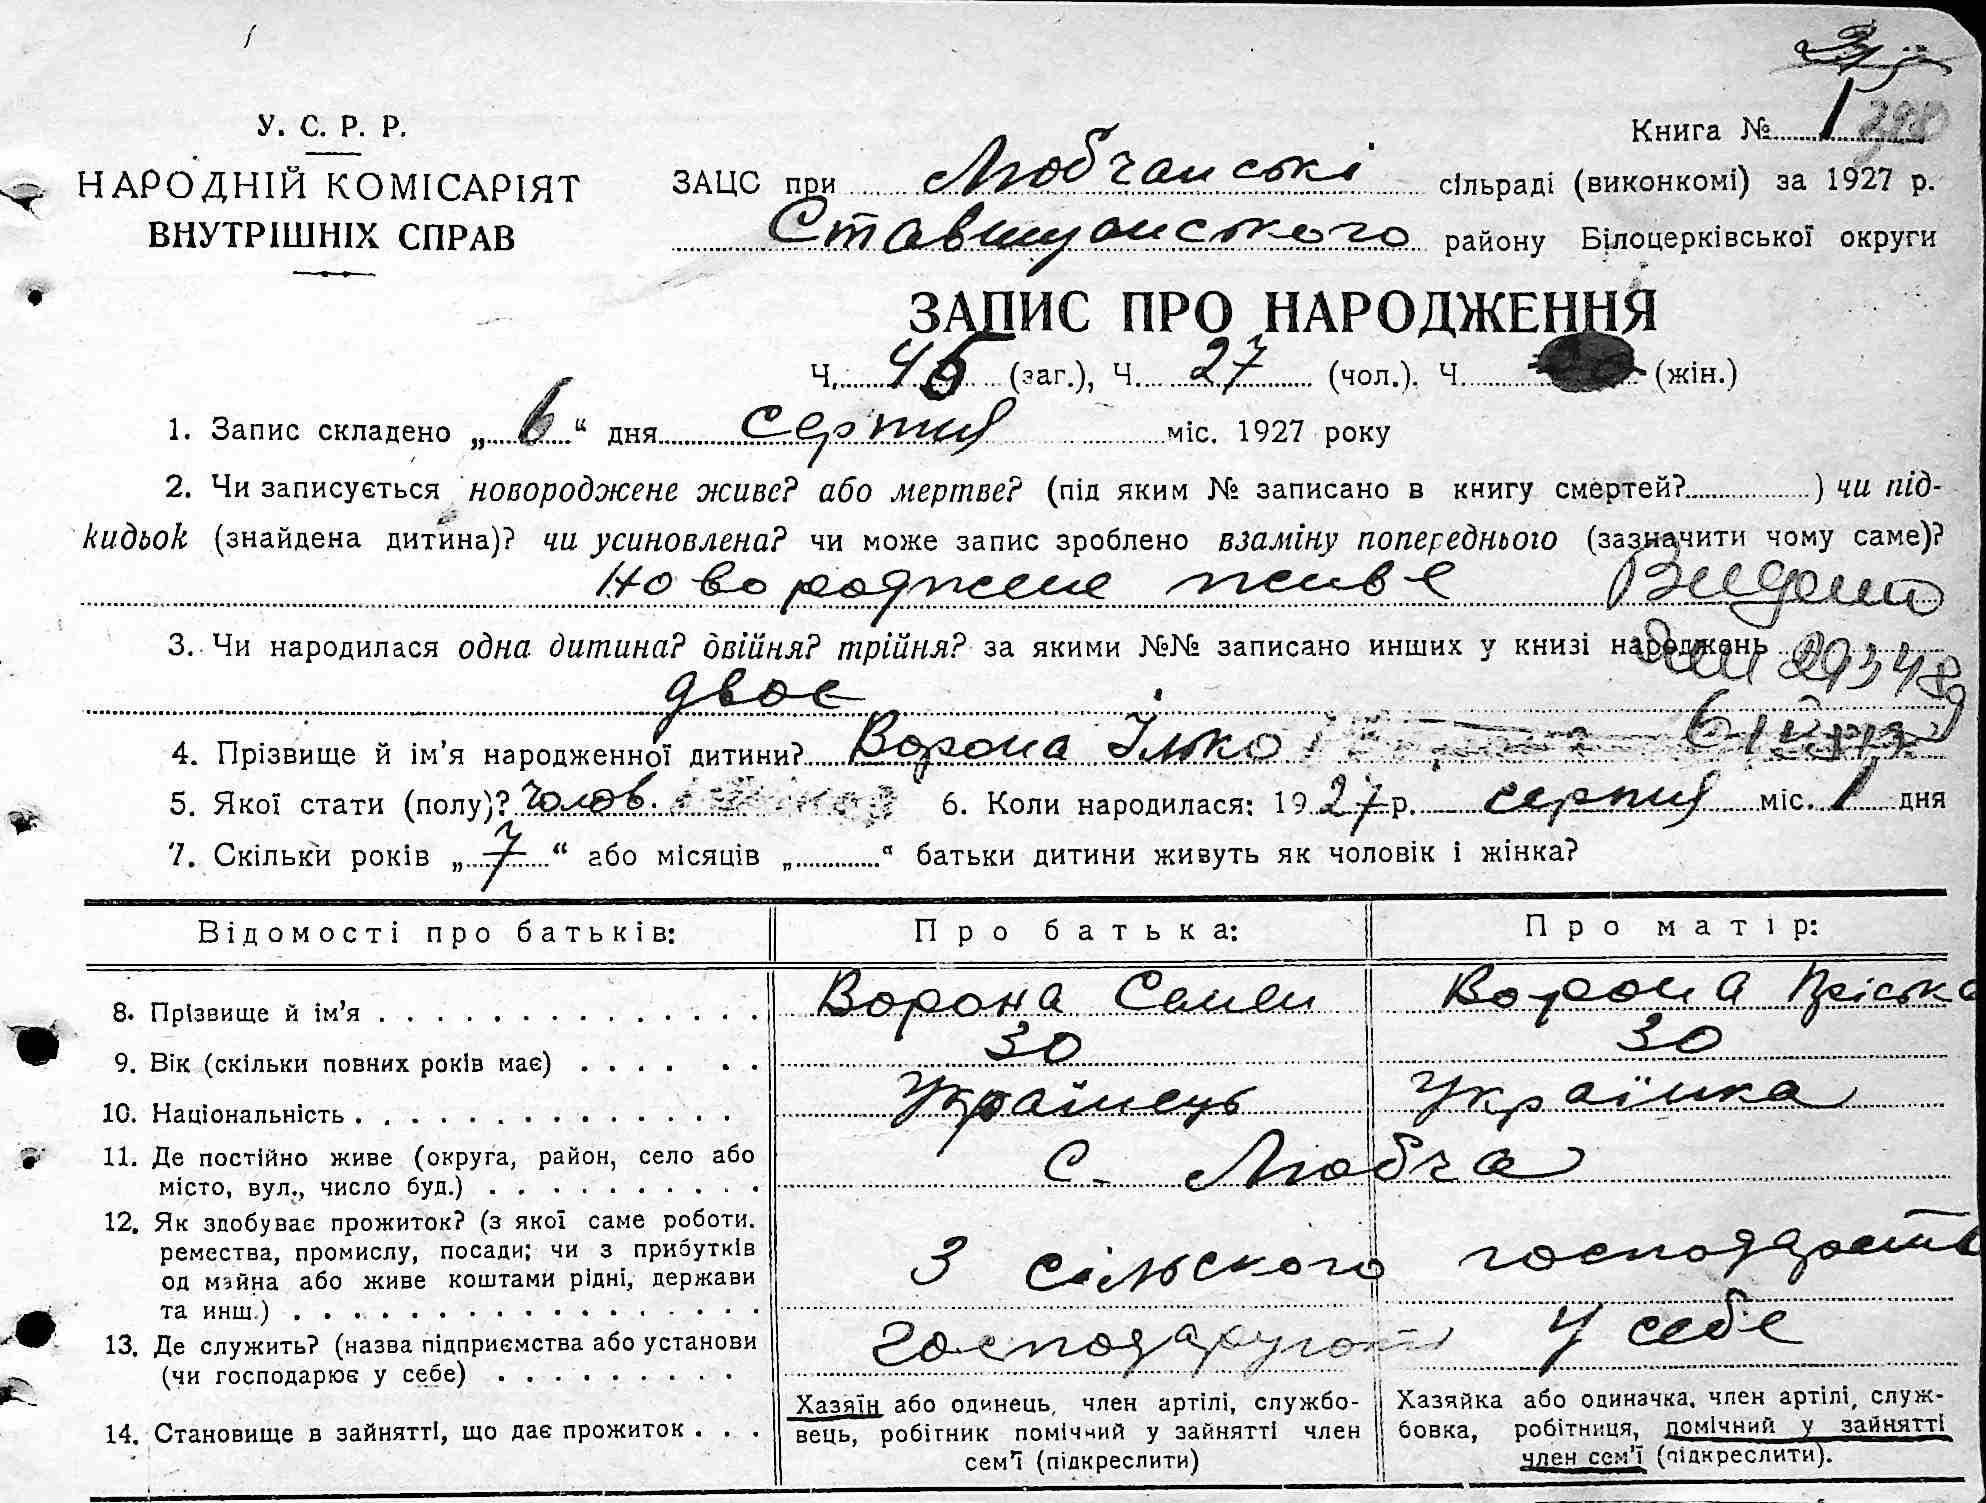 У. С. Р. Р.
НАРОДНІЙ КОМІСАРІЯТ
ВНУТРІШНІХ СПРАВ
Книга № 1
ЗАЦС при Любчанські сільраді (виконкомі) за 1927 р.
Ставищанського району Білоцерківської округи
ЗАПИС ПРО НАРОДЖЕННЯ
Ч. 45 (заг.), Ч. 27 (чол.). Ч. (жін.)
1. Запис складено „6“ дня серпня міс. 1927 року
2. Чи записується новороджене живе? або мертве? (під яким № записано в книгу смертей? ) чи під-
кидьок (знайдена дитина)? чи усиновлена? чи може запис зроблено взаміну попереднього (зазначити чому саме)?
Новороджене живе Видано
3. Чи народилася одна дитина? двійня? трійня? за якими №№ записано инших у книзі народжень
двоє
4. Прізвище й ім'я народженної дитини? Ворона Ілько
5. Якої стати (полу)? чолов. 6. Коли народилася: 1927 р. серпня міс. 1 дня
7. Скільки років „7“ або місяців „ “ батьки дитини живуть як чоловік і жінка?
Відомості про батьків: Про батька: Про матір:
8. Прізвище й ім'я Ворона Семен Ворона Пріська
9. Вік (скільки повних років має) 30 30
10. Національність Українець Українка
11. Де постійно живе (округа, район, село або
місто, вул., число буд.) с. Любча
12. Як здобуває прожиток? (з якої саме роботи.
ремества, промислу, посади; чи з прибутків
од майна або живе коштами рідні, держави
та инш.) З сільского господарств
13. Де служить? (назва підприємства або установи
(чи господарює у себе) господарують у себе
14. Становище в зайнятті, що дає прожиток
Хазяїн або одинець, член артілі, службо-
вець, робітник помічний у зайнятті член
сем'ї (підкреслити)
Хазяйка або одиначка, член артілі, служ-
бовка, робітниця, помічний у зайнятті
член сем'ї (підкреслити).